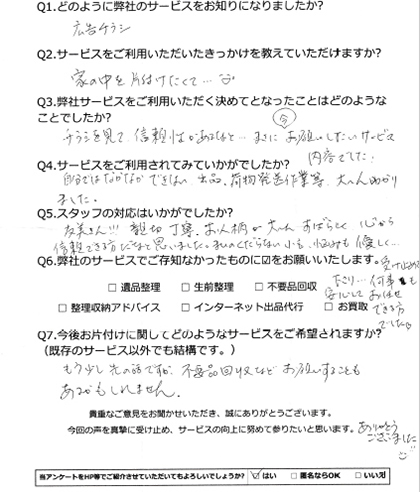 Q1.どのように弊社のサービスをお知りになりましたか?
広告チラシ
Q2.サービスをご利用いただいたきっかけを教えていただけますか?
家の中を片付けたくて…
Q3.弊社サービスをご利用いただく決めてとなったことはどのような
ことでしたか?
チラシを見て、信頼性があるなと… まさに 今 お願いしたいサービス
内容でした!
Q4.サービスをご利用されてみていかがでしたか?
自分ではなかなかできない 出品、荷物発送作業等、大へん助かり
ました。
Q5.スタッフの対応はいかがでしたか?
友美さん!!! 親切、丁寧、お人柄が大へんすばらしく 心から
信頼できる方だなと思いました。私のくだらない 悩みも 優しく…
受け止めて
下さり… 何事も
安心してお任せ
できる方
でした。
Q6.弊社のサービスでご存知なかったものに☑をお願いいたします。
□ 遺品整理 □ 生前整理 □ 不要品回収
□ 整理収納アドバイス □ インターネット出品代行 □ お買取
Q7.今後お片付けに関してどのようなサービスをご希望されますか?
(既存のサービス以外でも結構です。)
もう少し先の話ですが、不要品回収など お願いすることも
あるかもしれません。
貴重なご意見をお聞かせいただき、誠にありがとうございます。
今回の声を真摯に受け止め、サービスの向上に努めて参りたいと思います。
ありがとう
ございました
当アンケートをHP等でご紹介させていただいてもよろしいでしょうか? ☑ はい □ 匿名ならOK □ いいえ